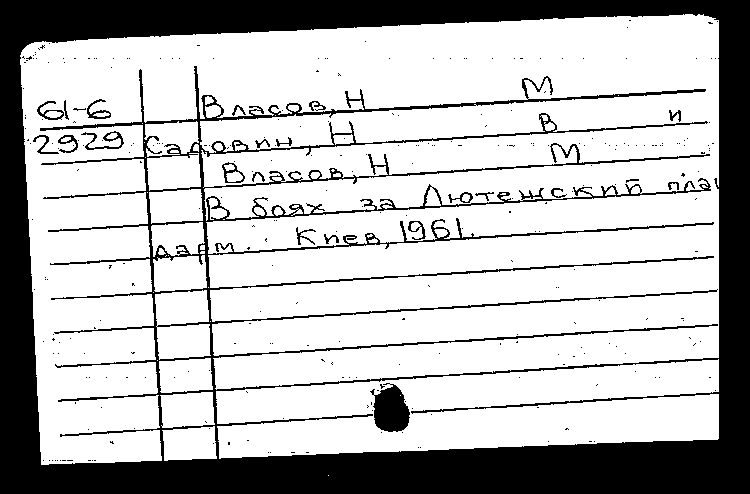 61-6 Власов, Н М
2929 Садовин, Н В и
Власов, Н М
В боях за Лютежский плац
дарм. Киев, 1961.